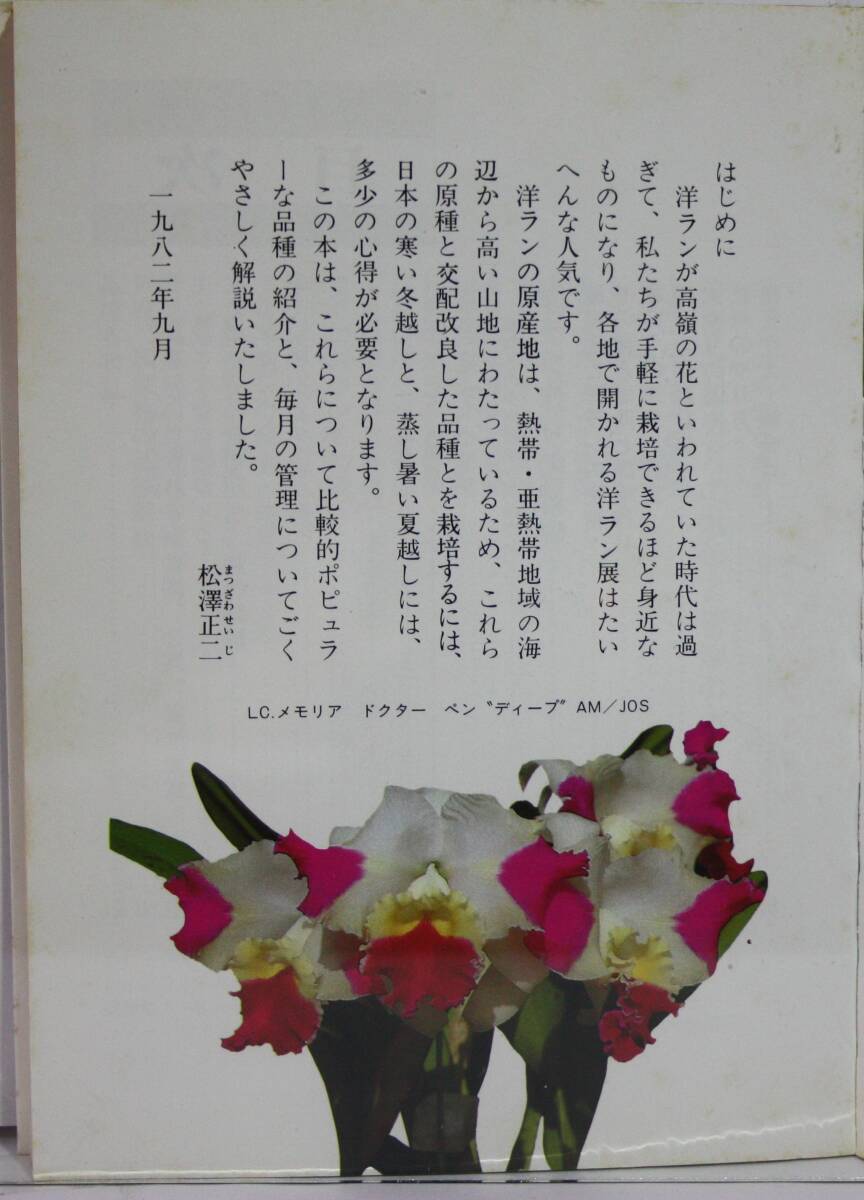 はじめに
洋ランが高嶺の花といわれていた時代は過
ぎて、私たちが手軽に栽培できるほど身近な
ものになり、各地で開かれる洋ラン展はたい
へんな人気です。
洋ランの原産地は、熱帯・亜熱帯地域の海
辺から高い山地にわたっているため、これら
の原種と交配改良した品種とを栽培するには、
日本の寒い冬越しと、蒸し暑い夏越しには、
多少の心得が必要となります。
この本は、これらについて比較的ポピュラ
ーな品種の紹介と、毎月の管理についてごく
やさしく解説いたしました。
松澤正二
まつざわせいじ
一九八二年九月
LC.メモリア　ドクター　ペン〝ディープ〞AM／JOS